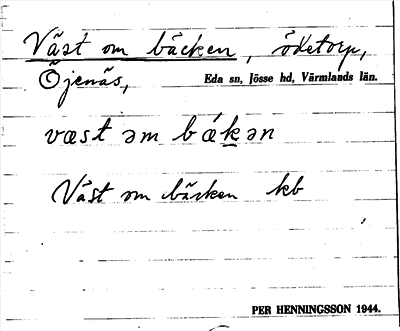 Väst om bäcken, ödetorp,
Öjenäs, Eda sn, Jösse hd, Värmlands län.
væst əm bækən
Väst om bäcken kb
PER HENNINGSSON 1944.